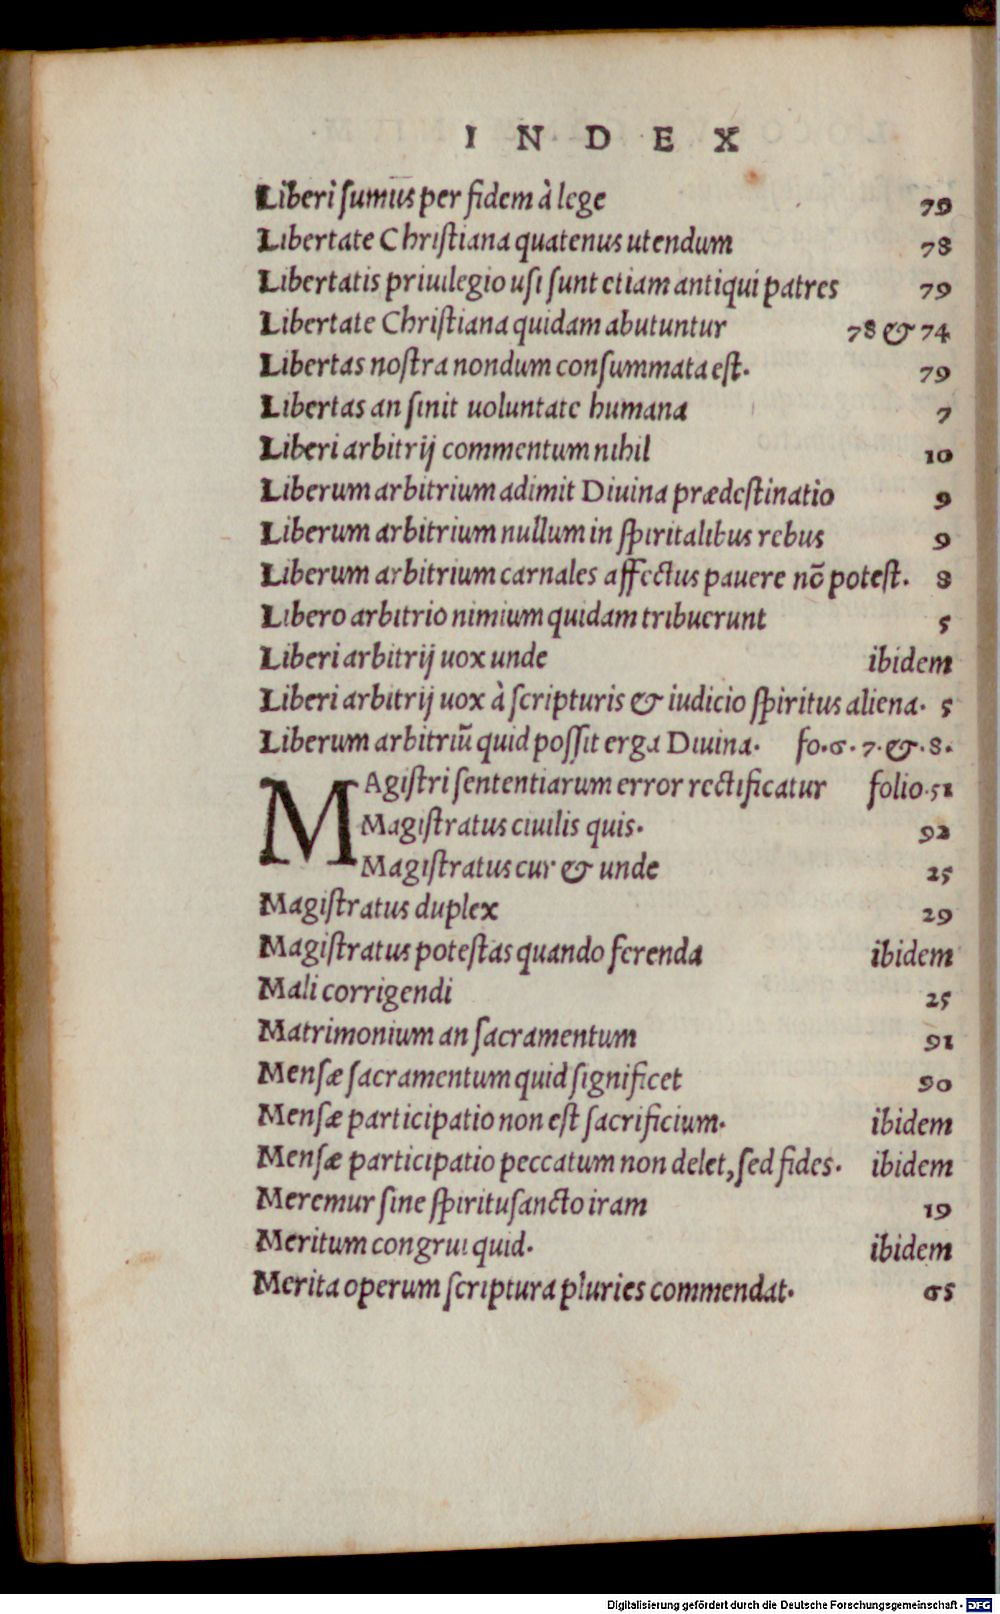 INDEX
Liberi sumus per fidem à lege 79
Libertate Christiana quatenus utendum 78
Libertatis priuilegio usi sunt etiam antiqui patres 79
Libertate Christiana quidam abutuntur 78 & 74
Libertas nostra nondum consummata est. 79
Libertas an sinit uoluntate humana 7
Liberi arbitrij commentum nihil 10
Liberum arbitrium adimit Diuina prædestinatio 9
Liberum arbitrium nullum in spiritalibus rebus 9
Liberum arbitrium carnales affectus pauere nō potest. 8
Libero arbitrio nimium quidam tribuerunt 5
Liberi arbitrij uox unde ibidem
Liberi arbitrij uox à scripturis & iudicio spiritus aliena. 5
Liberum arbitriū quid possit erga Diuina. fo.6.7.&.8.
MAgistri sententiarum error rectificatur folio.51
Magistratus ciuilis quis. 92
Magistratus cur & unde 25
Magistratus duplex 29
Magistratus potestas quando ferenda ibidem
Mali corrigendi 25
Matrimonium an sacramentum 91
Mensæ sacramentum quid significet 90
Mensæ participatio non est sacrificium. ibidem
Mensæ participatio peccatum non delet, sed fides. ibidem
Meremur sine spiritusancto iram 19
Meritum congrui quid. ibidem
Merita operum scriptura pluries commendat. 65
Digitalisierung gefördert durch die Deutsche Forschungsgemeinschaft - DFG